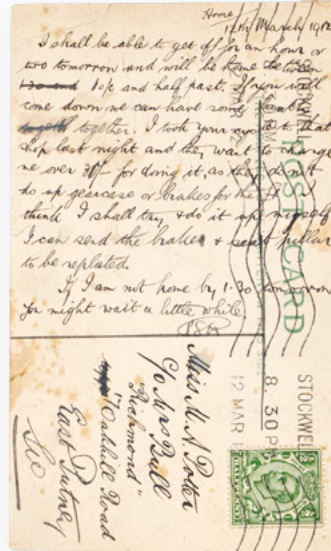 Home
12th March 191
I shall be able to get off for an hour or
two tomorrow and will be home between
1 o/c and half past. If you will
come down we can have some
together. I took your cycle to that
shop last night and they want to charge
me over 30/- for doing it, as they do not
do up gearcase or brakes for the I
think I shall try & do it up myself
I can send the brakes & seat pillar
to be replated.
If I am not home by 1.30 tomorrow
you might wait a little while
POST CARD
Miss M. N. Potter
C/o Mrs Ball
"Richmond"
Oakhill Road
East Putney
STOCKWELL
8. 30 P
12 MAR 1